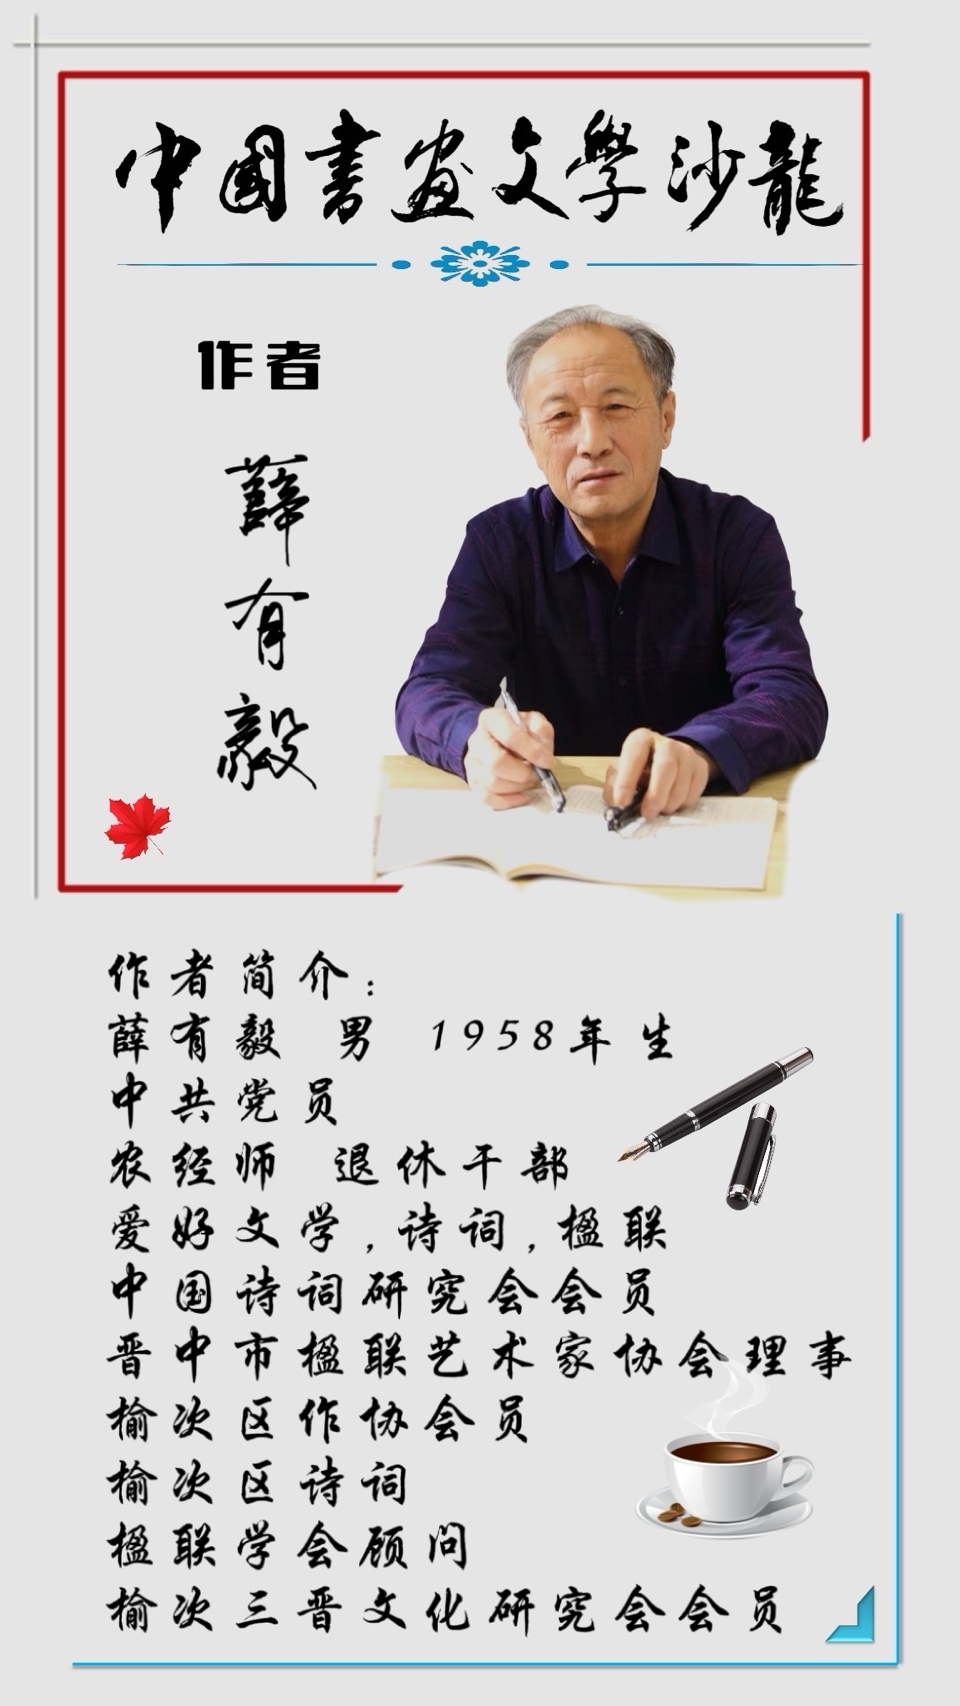 中國書畫文學沙龍
作者
薛有毅
作者简介：
薛有毅 男 1958年生
中共党员
农经师 退休干部
爱好文学,诗词,楹联
中国诗词研究会会员
晋中市楹联艺术家协会理事
榆次区作协会员
榆次区诗词
楹联学会顾问
榆次三晋文化研究会会员